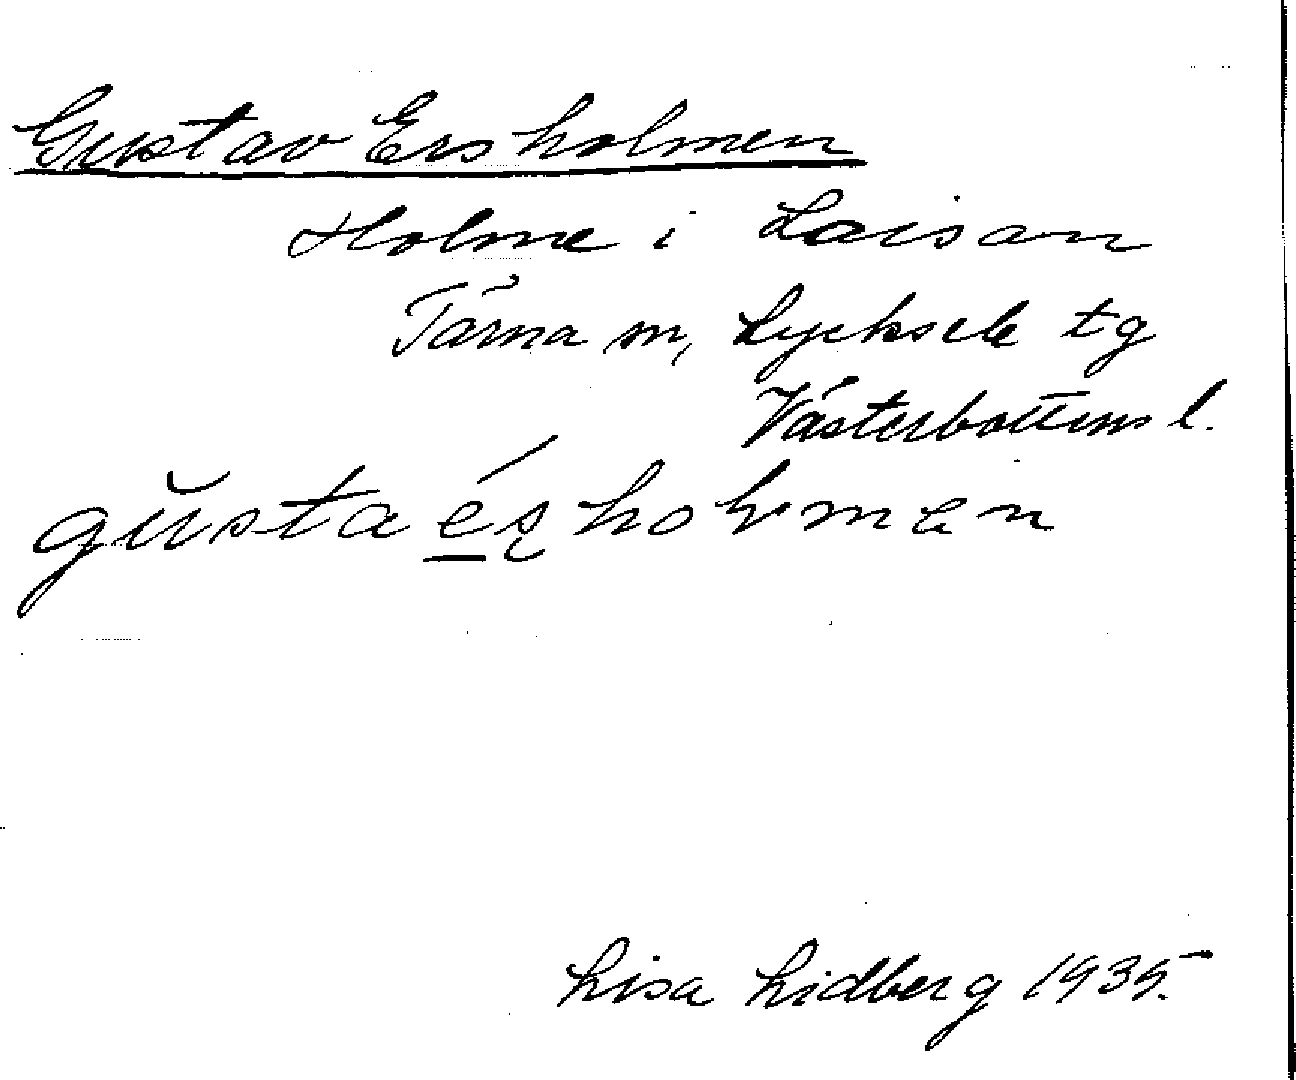 Gustav Ersholmen
Holme i Laisan
Tärna sn, Lycksele tg
Västerbottens l.
Lisa Lidberg 1935.